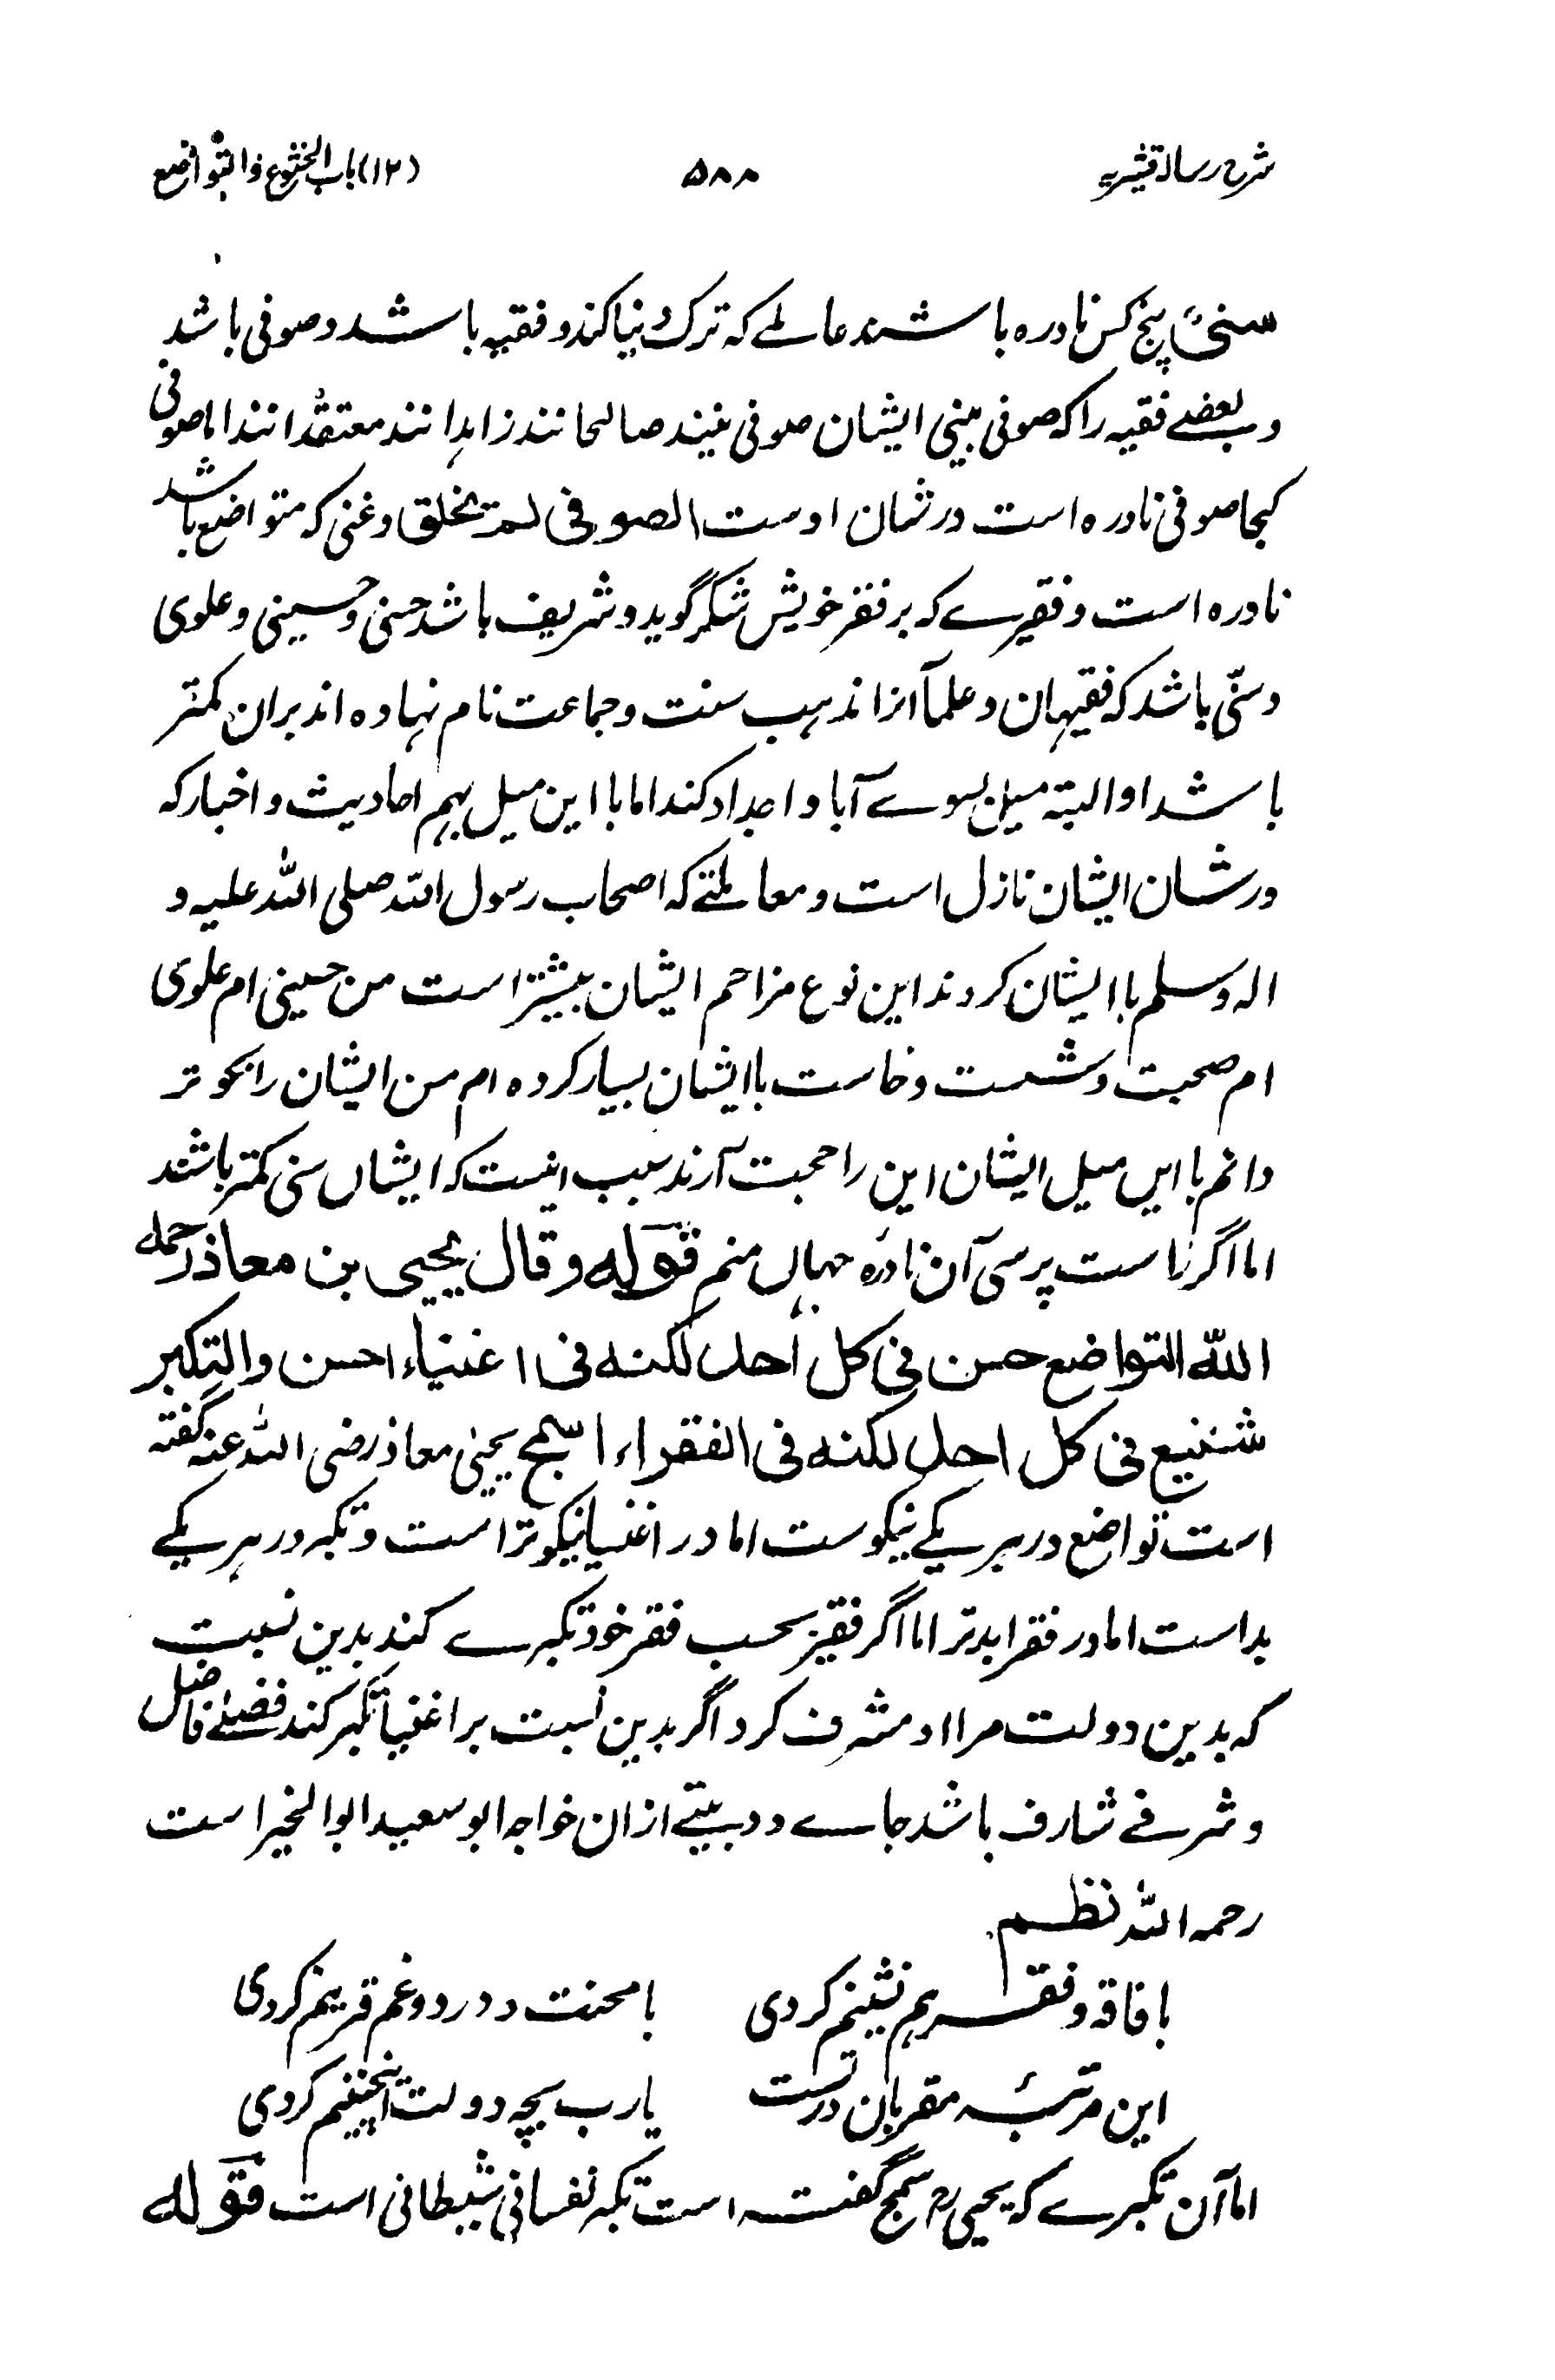 شرح رسالۀ قشیریه ۵۸۸ (۱۲) باب الخشوع والتواضع
سنیً پنج کس نادره باشند عالمے که ترک دنیا کند و فقیه باشد و صوفی باشد
و بعضے فقیه را که صوفی بینی ایشان صوفی نیند صالحانند زاهدانند معتقدانند اما صوفی
کجا صوفی نادره است در شان اوست الصوفی لم تخلق و غنی که متواضع باشد
نادره است و فقیرے که بر فقر خویش شکر گوید و شریف باشد حسنی و حسینی و علوی
و سنّی باشد که فقیهان و علما آنرا مذهب سنت و جماعت نام نهاده اند بران کمتر
باشد او البته میلی بسوے آبا و اجداد کند اما با این میل بهم احادیث و اخبار که
در شان ایشان نازل است و معاملتے که اصحاب رسول الله صلی الله علیه و
اله و سلم با ایشان کردند این نوع مزاحم ایشان بیشتر است من حسینی ام علوی
ام صحبت و نشست و خاست با ایشان بسیار کرده ام من ایشان را نکو تر
دانم با این میل ایشان این را حجت آرند سبب اینست که ایشان سنی کمتر باشند
اما اگر راست پرسی آن نادرۀ جهان منم قوله و قال یحیی بن معاذ رحمه
الله التواضع حسن فی کل احد لکنه فی اغنیاء احسن والتکبر
شنیع فی کل احد لکنه فی الفقراء اسمج یحییٰ معاذ رضی الله عنه گفته
است تواضع در هر یکے نیکوست اما در اغنیا نیکوتر است و تکبر در هر یکے
بد است اما در فقرا بدتر اما اگر فقیر بحسب فقر خود تکبرے کند بدین نسبت
که بدین دولت مرا او مشرف کرد اگر بدین نسبت بر اغنیا تکبر کند فضلے فاضل
و شرفے شارف باشد جاے دو بیتے ازان خواجه ابو سعید ابو الخیر است
رحمه الله نظم
با فاقه و فقر همنشینم کردی با محنت و درد و غم قرینم کردی
این مرتبۀ مقربان در تست یارب بچه دولت اینچنینم کردی
اما آن تکبرے که یحیی رح سمج گفته است تکبر نفسانی شیطانی است قوله